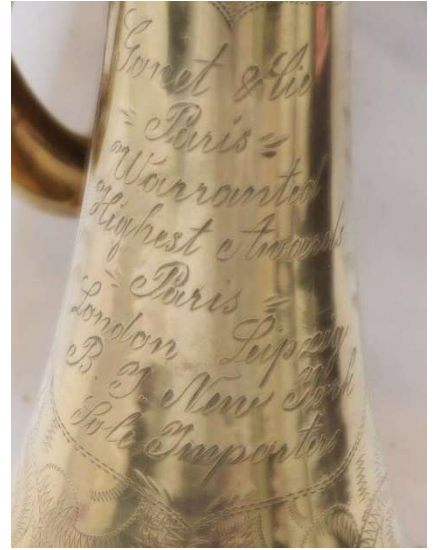 Gonet & Cie
= Paris =
Warranted
Highest Awards
= Paris =
London Leipzig
B. J. New York
Sole Importer